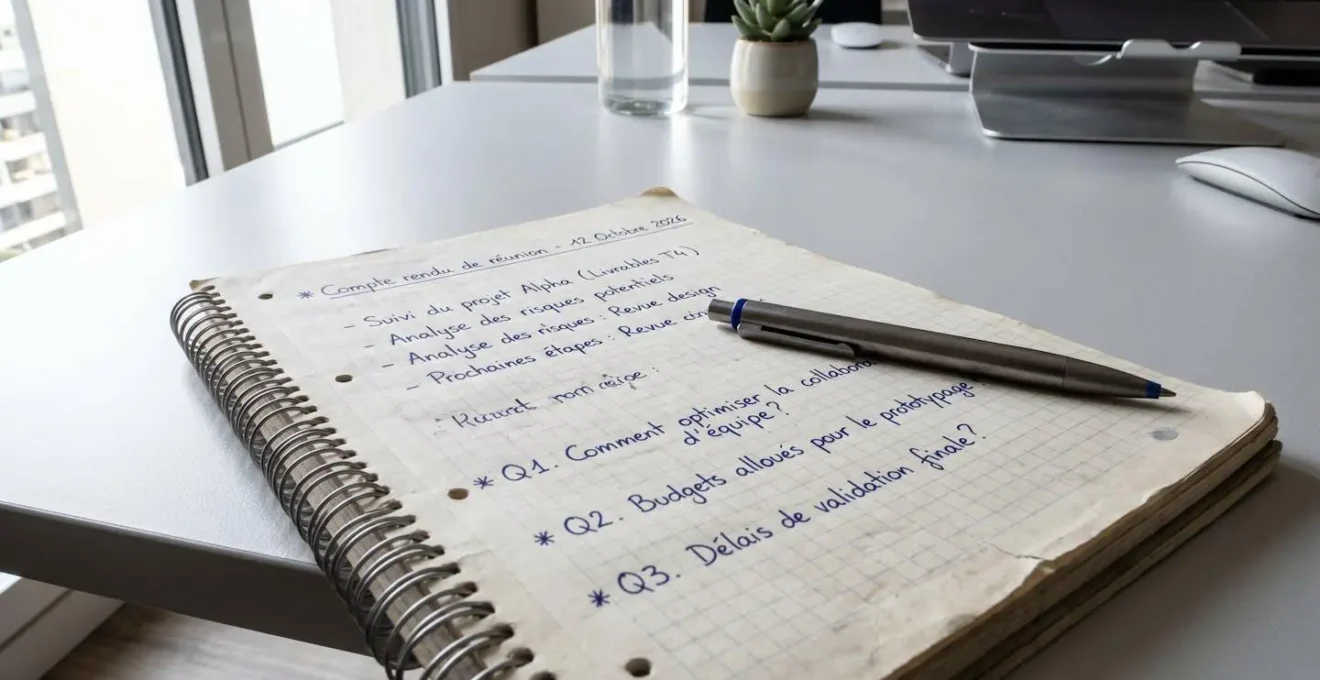 * Compte rendu de réunion - 12 Octobre 2026
- Suivi du projet Alpha (Livrables T4)
- Analyse des risques potentiels
- Analyse des risques : Revue design
- Prochaines étapes : Revue
* Q1. Comment optimiser la collabora
d'équipe?
* Q2. Budgets alloués pour le prototypage
* Q3. Délais de validation finale?